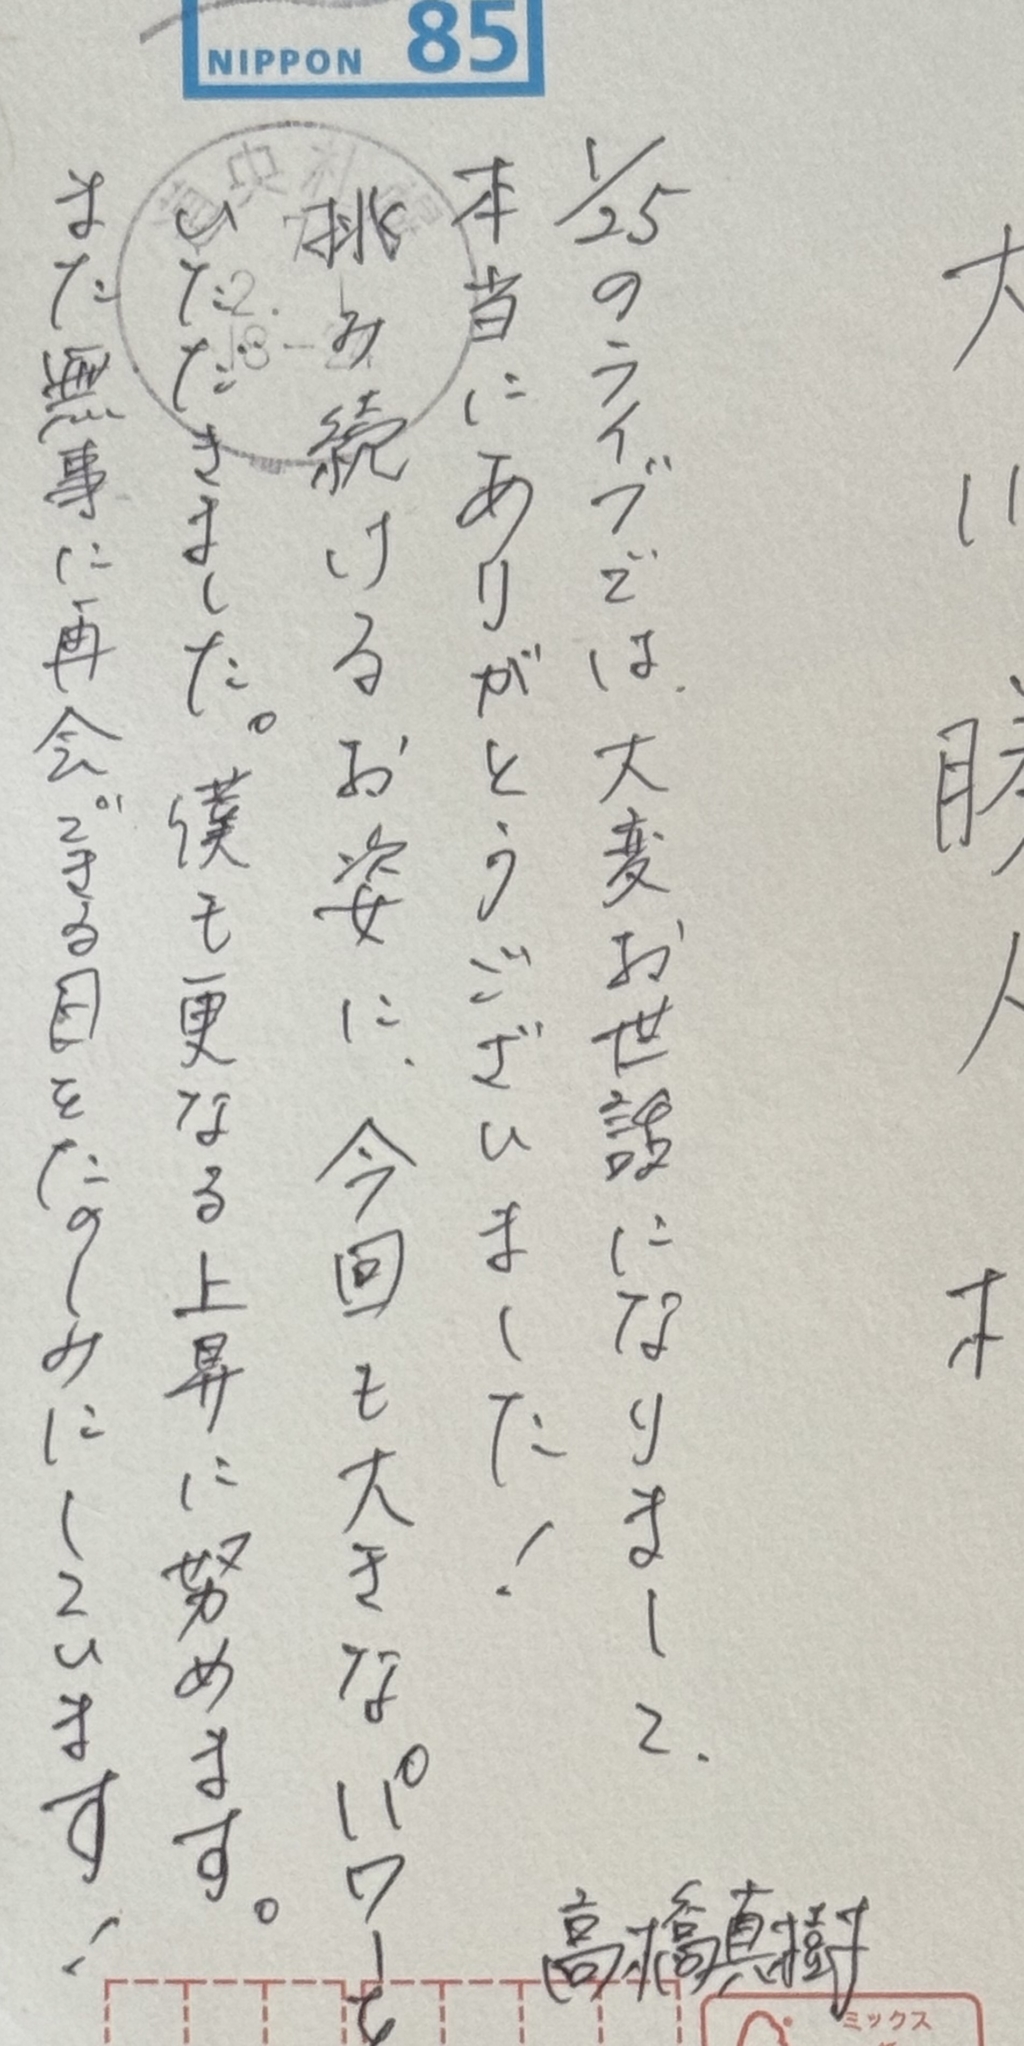 大川勝
1/25のライブでは、大変お世話になりまして、
本当にありがとうございました!
挑み続けるお姿に、今回も大きなパワーを
いただきました。僕も更なる上昇に努めます。
また無事に再会できる日をたのしみにしています!
高橋真樹
NIPPON 85
道央札幌
ミックス